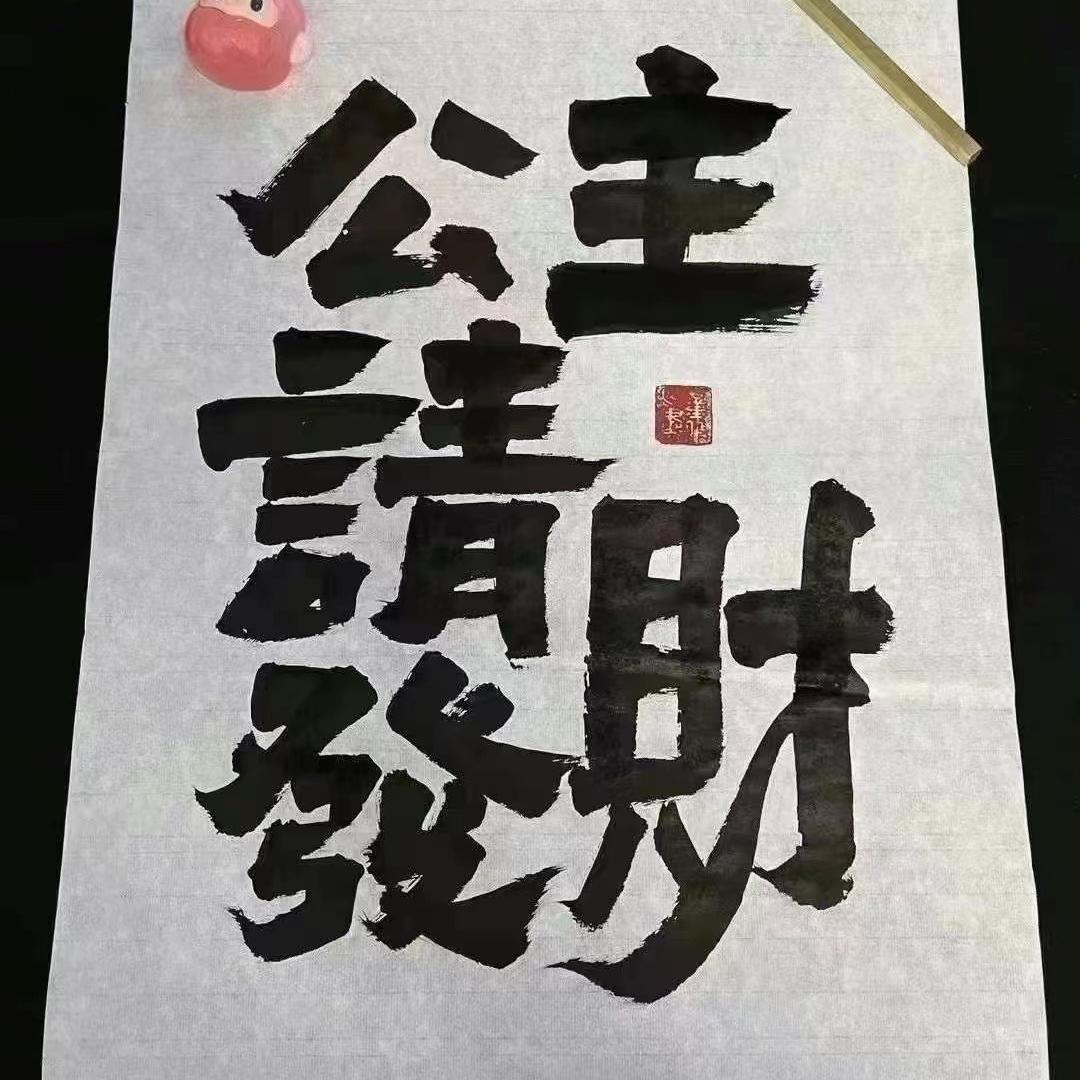 公主
請
發財